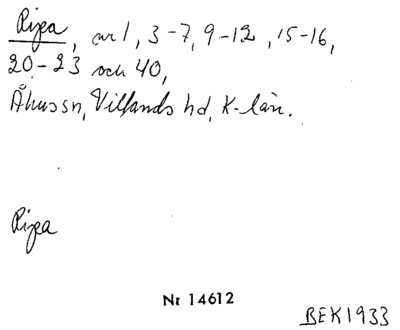 Ripa, nr 1, 3-7, 9-12, 15-16,
20-23 och 40,
Åhus sn, Villands hd, K-län.
Ripa
Nr 14612
BEK1933